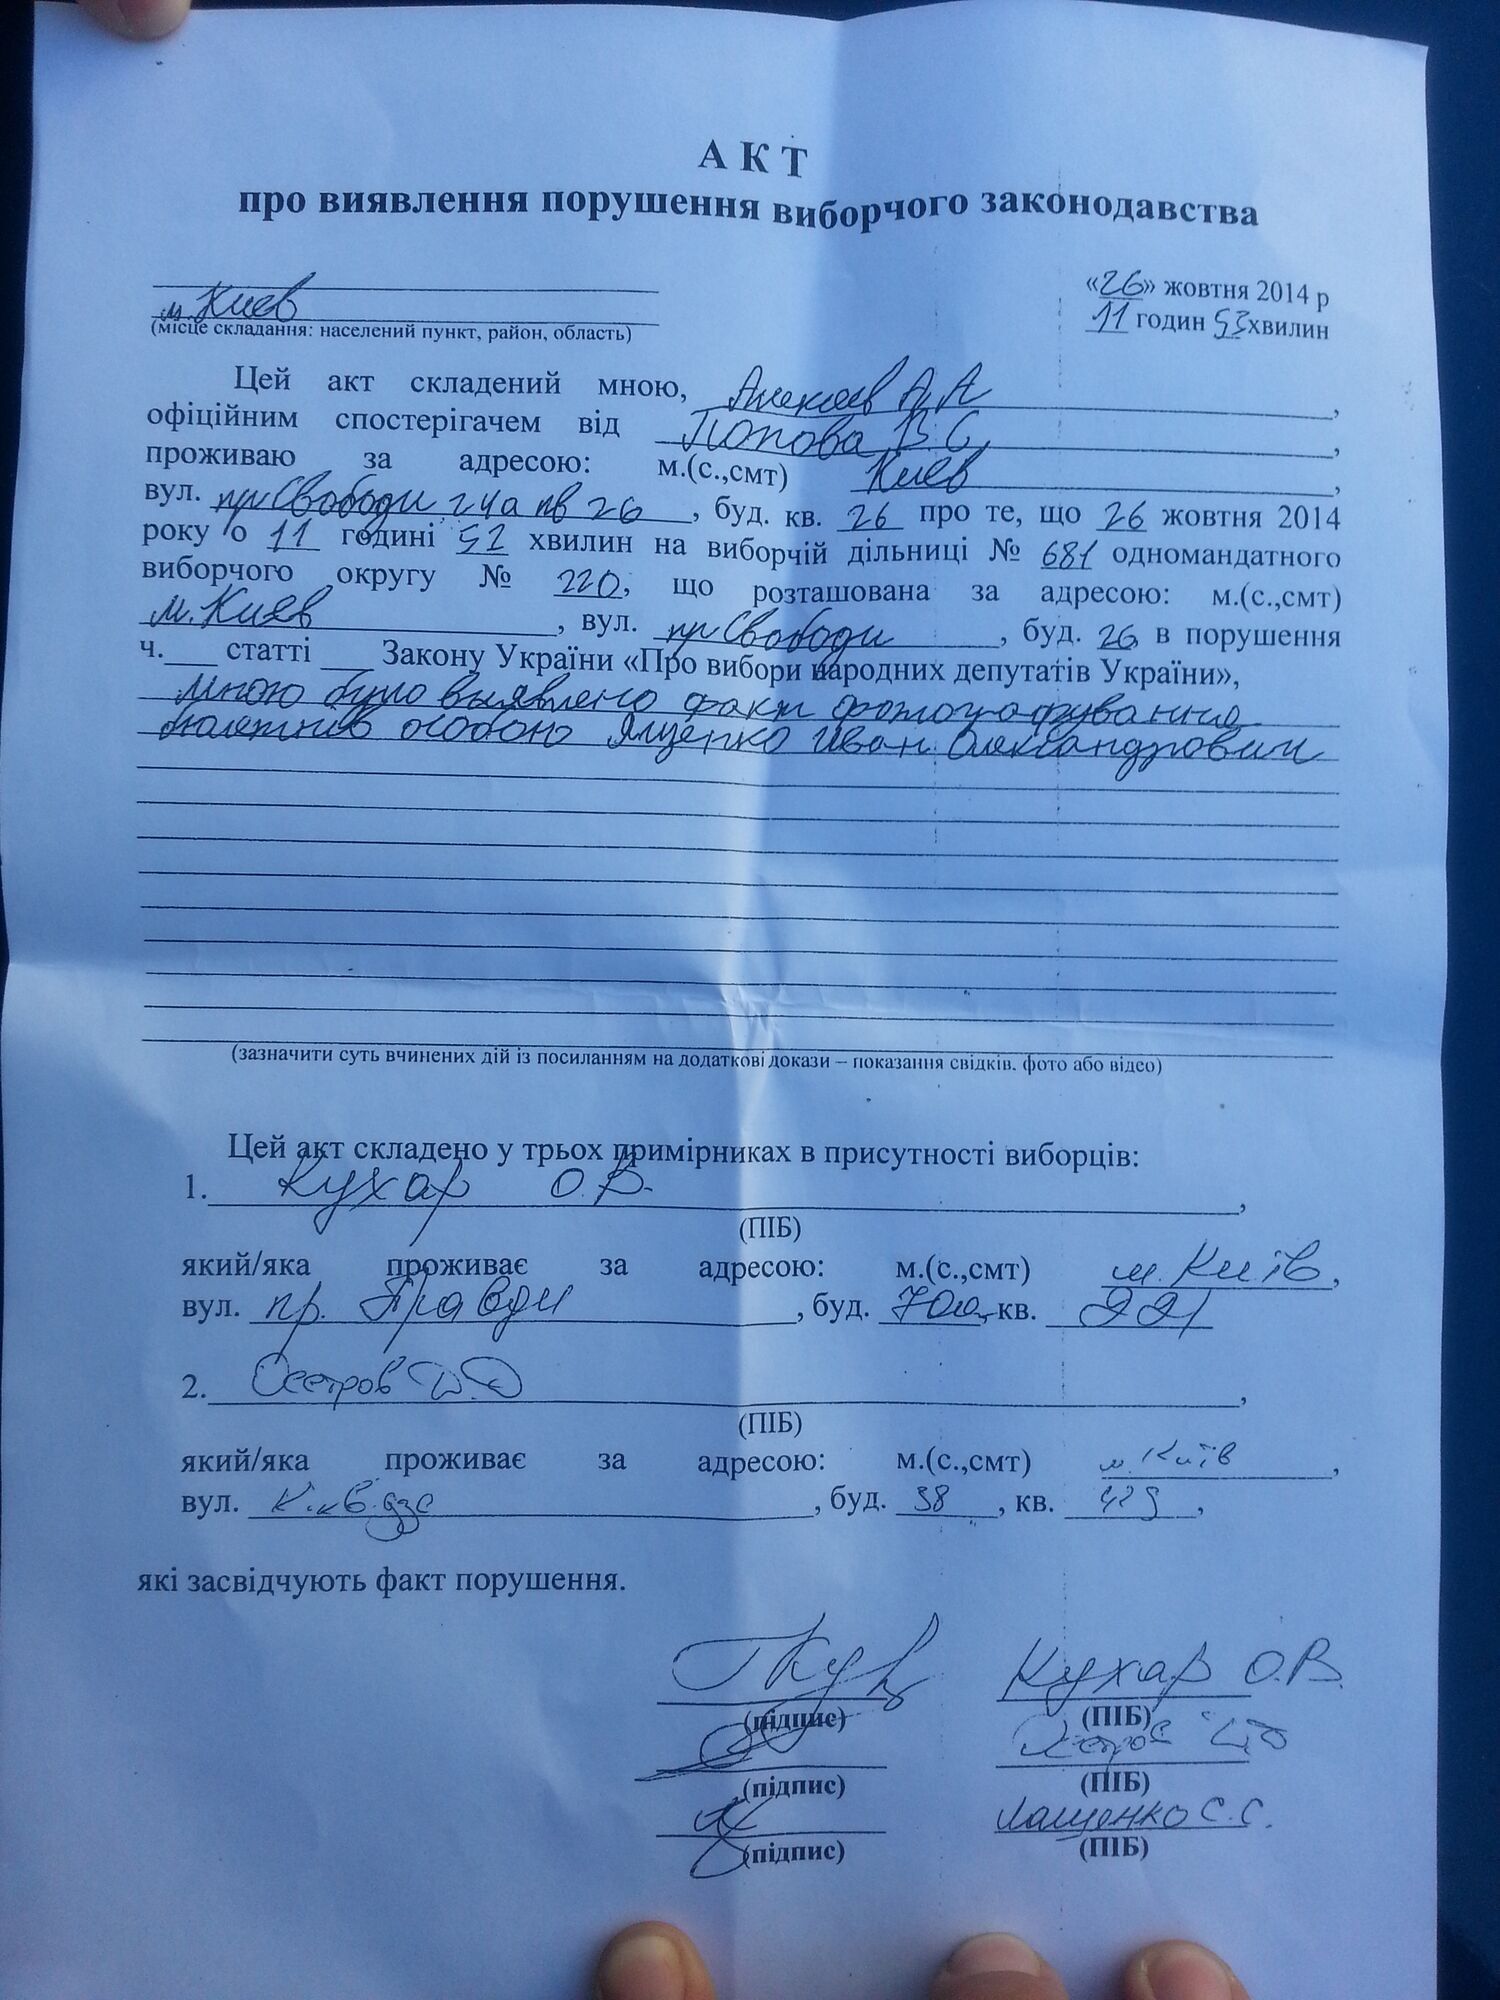 А К Т
про виявлення порушення виборчого законодавства
«26» жовтня 2014 р
м. Киев
11 годин 53 хвилин
(місце складання: населений пункт, район, область)
Цей акт складений мною, А А,
офіційним спостерігачем від Попова В С,
проживаю за адресою: м.(с.,смт) Киев,
вул. пр Свободи 24а кв 26, буд. кв. 26 про те, що 26 жовтня 2014
року о 11 годині 52 хвилин на виборчій дільниці № 681 одномандатного
виборчого округу № 220, що розташована за адресою: м.(с.,смт)
м. Киев, вул. пр Свободи, буд. 26, в порушення
ч.___ статті ___ Закону України «Про вибори народних депутатів України»,
мною було выявлено факт фотографування
особою Иван Олександрович
(зазначити суть вчинених дій із посиланням на додаткові докази – показання свідків, фото або відео)
Цей акт складено у трьох примірниках в присутності виборців:
1. Кухар О.В.,
(ПІБ)
який/яка проживає за адресою: м.(с.,смт) м. Київ,
вул. пр. Правди, буд. 70а, кв. 221
2.
(ПІБ)
який/яка проживає за адресою: м.(с.,смт) м. Київ,
вул., буд. 38, кв.,
які засвідчують факт порушення.
Кухар О.В.
(підпис) (ПІБ)
(підпис) (ПІБ)
Лащенко С.С.
(підпис) (ПІБ)